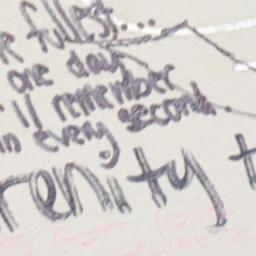 R fullest...
one day
'll remember
in every second.
renity t